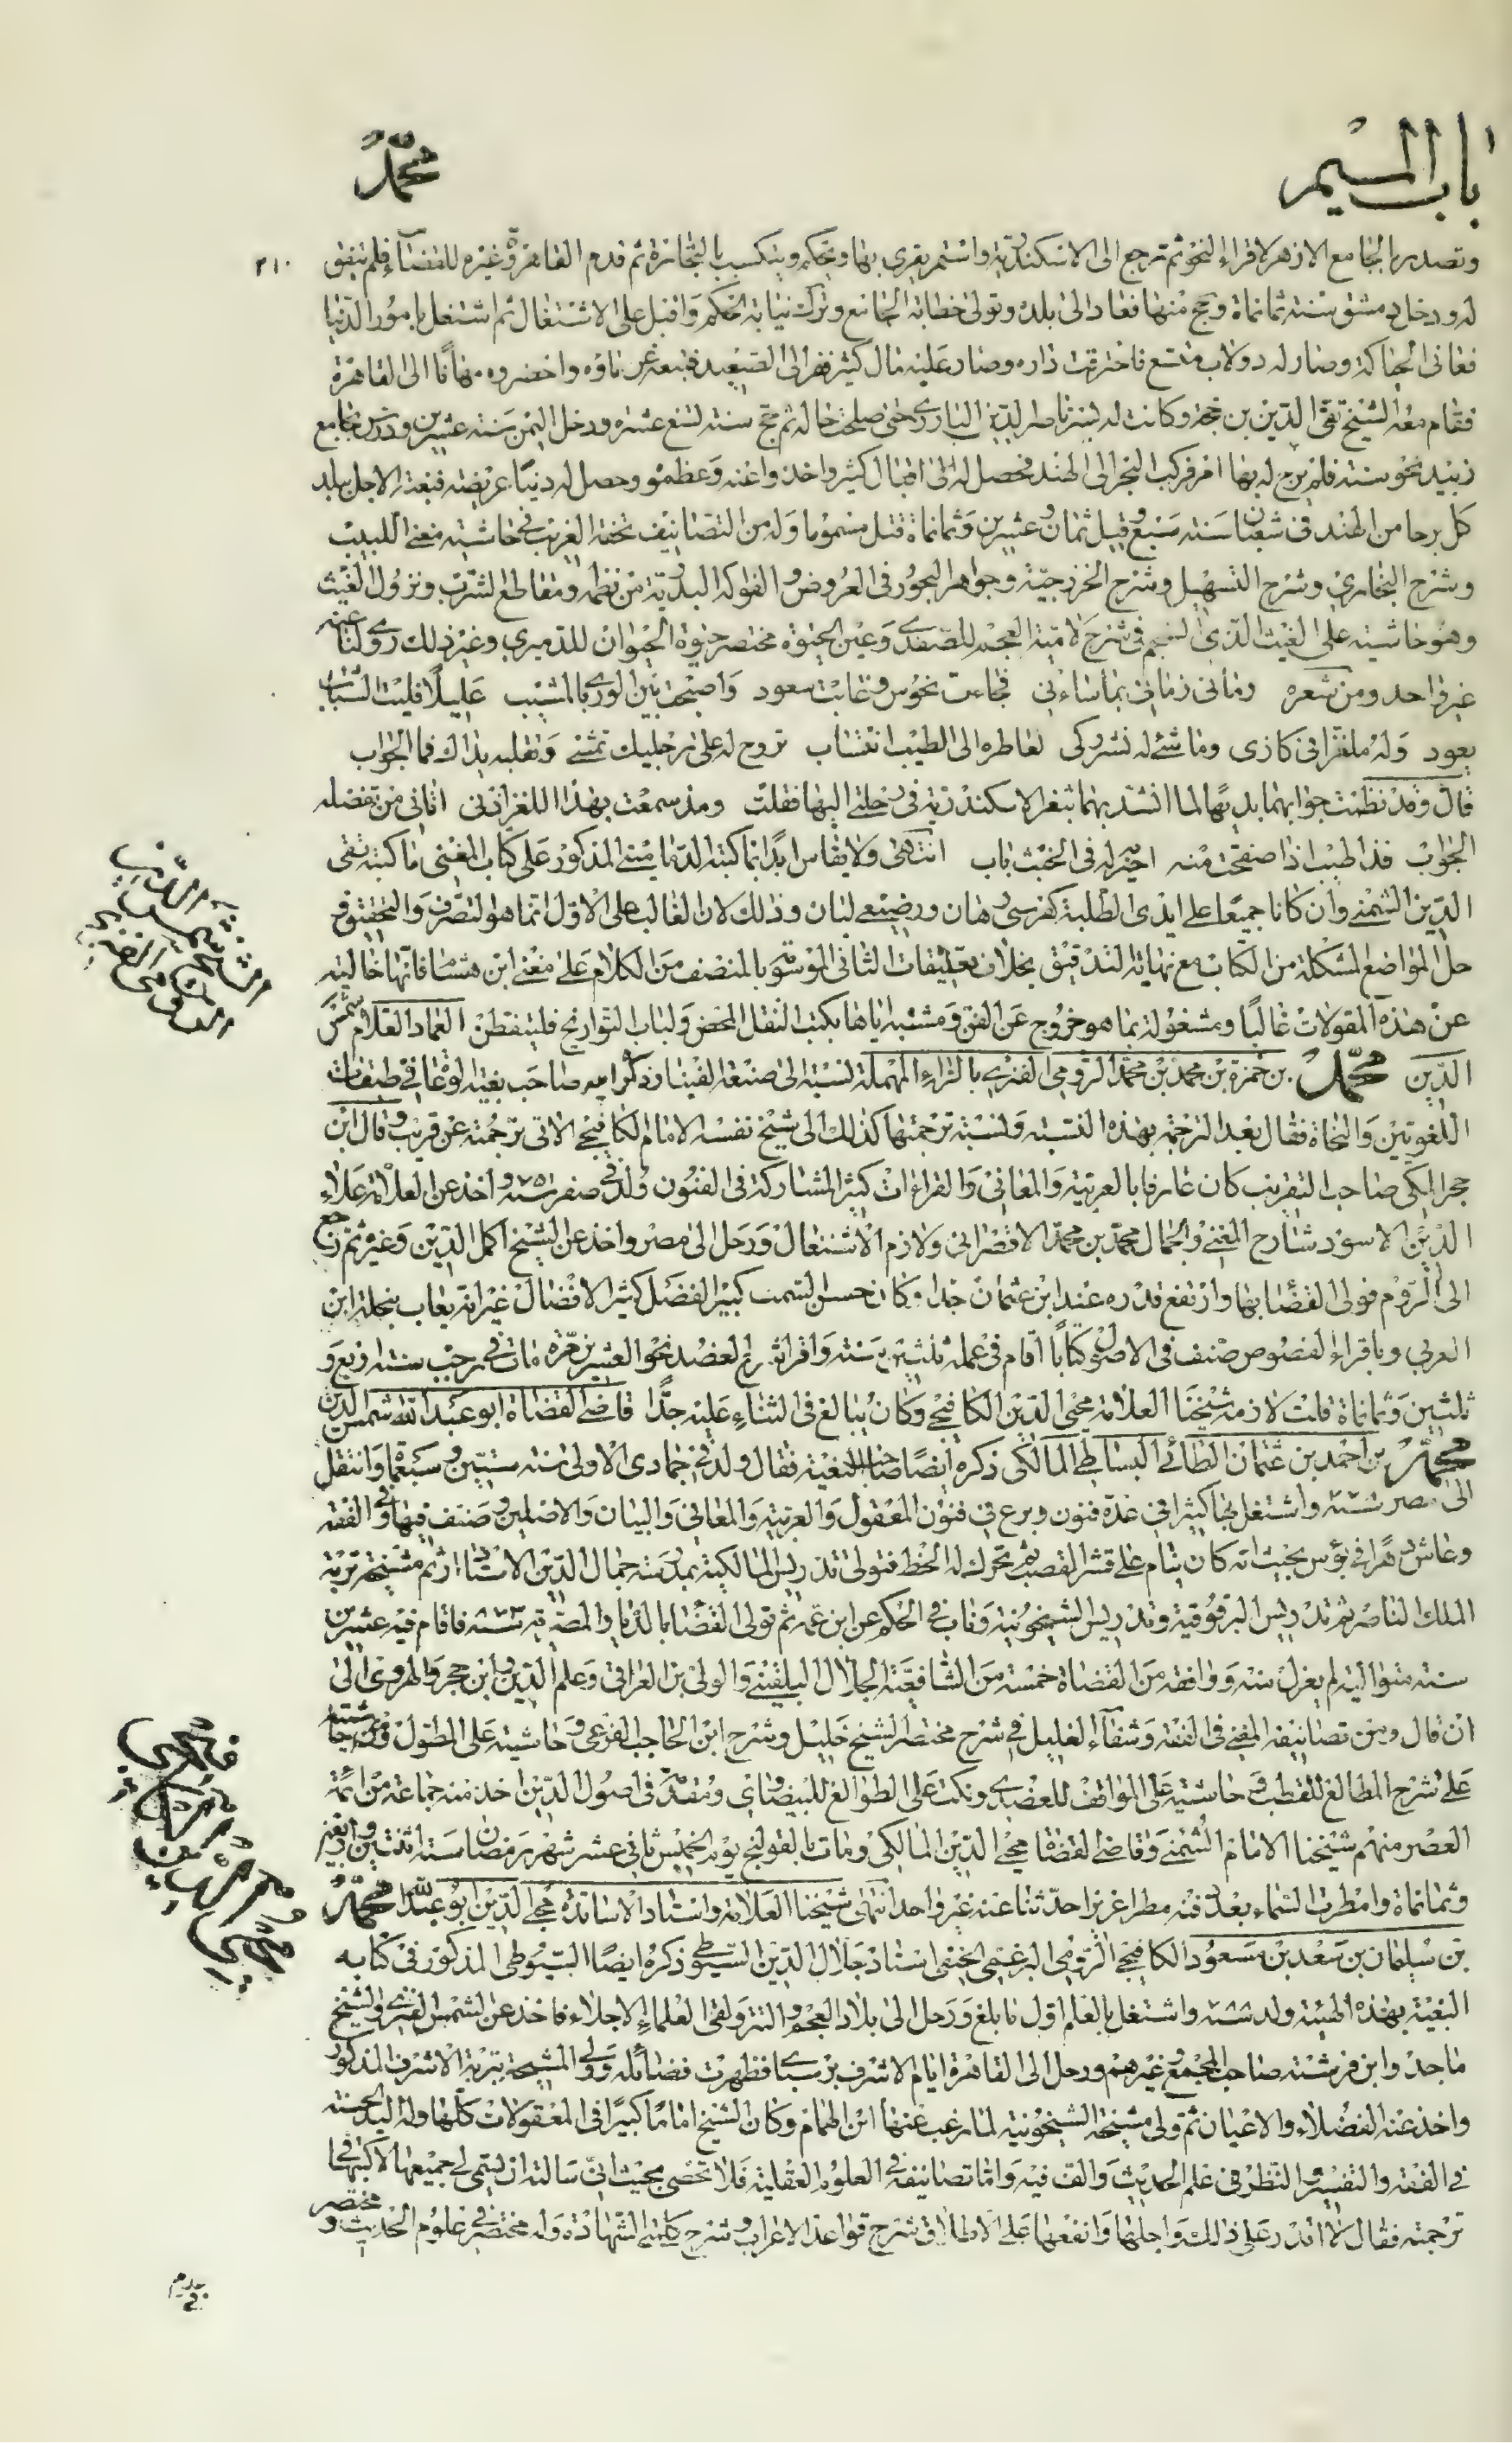 باب الميم
محمّد
٢١٠
وتصدر بالجامع الازهر لاقراء النحو ثم رجع الى الاسكندرية واستمر يقرى بها ويحكم ويتكسب بالتجارة ثم قدم القاهرة وعين للقضاء فلم يتفق
له ودخل دمشق سنة ثمانمأة وحج منها فعاد الى بلده وتولى خطابة الجامع وترك نيابة الحكم واقبل على الاشتغال ثم اشتغل بامور الدنيا
فعانى الحياكة وصار له دولاب متسع فاحترقت داره وصار عليه مال كثير ففر الى الصعيد فتبعه غرماؤه واحضروه مهانًا الى القاهرة
فقام معه الشيخ تقى الدين بن حجة وكاتب السر ناصر الدين البارزى حتى صلحت حاله ثم حج سنة تسع عشرة ودخل اليمن سنة عشرين ودرس بجامع
زبيد نحو سنة فلم يرج له بها امر فركب البحر الى الهند فحصل له اقبال كثير واخذوا عنه وعظموه وحصل له دنيا عريضة فبغته الاجل ببلد
كلبرجا من الهند فى شعبان سنة سبع وقيل ثمان وعشرين وثمانمأة قتل مسموما وله من التصانيف تحفة الغريب فى حاشية مغنى اللبيب
وشرح البخارى وشرح التسهيل وشرح الخزرجية وجواهر البحور فى العروض والفواكه البدرية من نظمه ومقاطع الشرب ونزول الغيث
وهو حاشية على الغيث الذى انسجم فى شرح لامية العجم للصفدى وعين الحيوة مختصر حيوة الحيوان للدميرى وغير ذلك روى لنا عنه
غير واحد ومن شعره رمانى زمانى بما ساءنى فجاءت نحوس وغابت سعود واصبحت بين الورى بالمشيب عليلًا فليت الشباب
يعود وله ملغزا فى كاذى وما شئ له نشر زكى لعاطره الى الطيب انتساب تروح له على رجليك تمشى وتقلبه يداك فما الجواب
قال وقد نظمت جوابهما بديهًا لما انشد بهما بثغر الاسكندرية فى رحلتى اليها فقلت ومذ سمعت بهذا اللغز اذنى اتانى من تفضله
الجواب فذا طيب اذا صفحت منه اخيره له فى الخبث باب انتهى ولا يقاس ابدًا ما كتبه الدمامينى المذكور على كتاب المغنى ما كتبه تقى
الدين الشمنى وان كانا جميعًا على ايدى الطلبة كفرسى رهان ورضيعى لبان وذلك لان الغالب على الاول انما هو التصرف والتحقيق فى
حل المواضع المشكلة من الكتاب مع نهاية التدقيق بخلاف تعليقات الثانى الموسوم بالمنصف من الكلام على مغنى ابن هشام فانها خالية
عن هذه المقولات غالبًا ومشغولة بما هو خروج عن الفن ومشبه اياها بكتب النقل المحض ولباب التواريخ فليتفطن العماد العلام شمس
الدين محمّد بن حمزة بن محمد بن محمد الرومى الفنرى بالراء المهملة نسبة الى صنعة الفينار وذكر اسمه صاحب بغية الوعاة فى طبقات
اللغويين والنحاة فقال بعد الترجمة بهذه النسبة ونسبة ترجمتها كذلك الى شيخ نفسه الامام الكافيجى الاتى ترجمته عن قريب وقال ابن
حجر المكى صاحب التقريب كان عارفا بالعربية والمعانى والقراءات كثير المشاركة فى الفنون ولد فى صفر سنة ٧٥١ واخذ عن العلامة علاء
الدين الاسود شارح المغنى والجمال محمد بن محمد الاقصرائى ولازم الاشتغال ورحل الى مصر واخذ عن الشيخ اكمل الدين وغيره ثم رجع
الى الروم فولى القضا بها وارتفع قدره عند ابن عثمان جدا وكان حسن السمت كبير الفضل كثير الافضال غير انه يعاب بنحلة ابن
العربى وباقراء الفصوص صنف فى الاصول كتابًا اقام فى عمله ثلثين سنة واقرأ شرح العضد نحو العشرين مرة مات فى رجب سنة اربع و
ثلثين وثمانمأة قلت لازمه شيخنا العلامة محيى الدين الكافيجى وكان يبالغ فى الثناء عليه جدًّا قاضى القضاة ابو عبد الله شمس الدين
محمّد بن احمد بن عثمان الطائى البساطى المالكى ذكره ايضًا صاحب البغية فقال ولد فى جمادى الاولى سنة ستين وسبعمأة وانتقل
الى مصر سنة واشتغل بها كثيرا فى عدة فنون وبرع فى فنون المعقول والعربية والمعانى والبيان والاصلين وصنف فيها وفى الفقه
وعاش دهرًا فى بؤس بحيث انه كان ينام على قشر القصب ثم تحرك له الحظ فتولى تدريس المالكية بمدرسة جمال الدين الاستادار ثم مشيخة تربة
الملك الناصر ثم تدريس البرقوقية وتدريس الشيخونية وناب فى الحكم عن ابن عمه ثم تولى القضا بالديار المصرية سنة ٨٢٣ فاقام فيه عشرين
سنة متوالية لم يعزل منه ووافقه من القضاة خمسة من الشافعية الجلال البلقينى والولى بن العراقى وعلم الدين وابن حجر والهروى الى
ان قال ومن تصانيفه المغنى فى الفقه وشفاء الغليل فى شرح مختصر الشيخ خليل وشرح ابن الحاجب الفرعى وحاشية على المطول وحاشية
على شرح المطالع للقطب وحاشية على المواقف للعضدى ونكت على الطوالع للبيضاوى ومقدمة فى اصول الدين اخذ منه جماعة من ائمة
العصر منهم شيخنا الامام الشمنى وقاضى القضاة محيى الدين المالكى ومات بالقولنج يوم الخميس ثانى عشر شهر رمضان سنة اثنتين واربعين
وثمانمأة وامطرت السماء بعد دفنه مطرا غزيرا حدثنا عنه غير واحد انتهى شيخنا العلامة واستاد الاساتذة محيى الدين ابو عبد الله محمّد
بن سليمان بن سعد بن مسعود الكافيجى الرومى البرغمى الحنفى استاد جلال الدين السيوطى ذكره ايضًا السيوطى المذكور فى كتابه
البغية بهذه الهيئة ولد سنة ٧٨٨ واشتغل بالعلم اول ما بلغ ورحل الى بلاد العجم والتتر ولقى العلماء الاجلاء فاخذ عن الشمس الفنرى والشيخ
ماجد وابن فرشته صاحب المجمع وغيرهم ورحل الى القاهرة ايام الاشرف برسباى فظهرت فضائله وولى المشيخة بتربة الاشرف المذكور
واخذ عنه الفضلاء والاعيان ثم ولى مشيخة الشيخونية لما رغب عنها ابن الهمام وكان الشيخ امامًا كبيرًا فى المعقولات كلها وله اليد الحسنة
فى الفقه والتفسير والنظر فى علم الحديث والف فيه واما تصانيفه فى العلوم العقلية فلا تحصى بحيث انى سالته ان يسمى لى جميعها لاكتبها فى
ترجمته فقال لا اقدر على ذلك واجلها وانفعها على الاطلاق شرح قواعد الاعراب وشرح كلمتى الشهادة وله مختصر فى علوم الحديث ومختصر